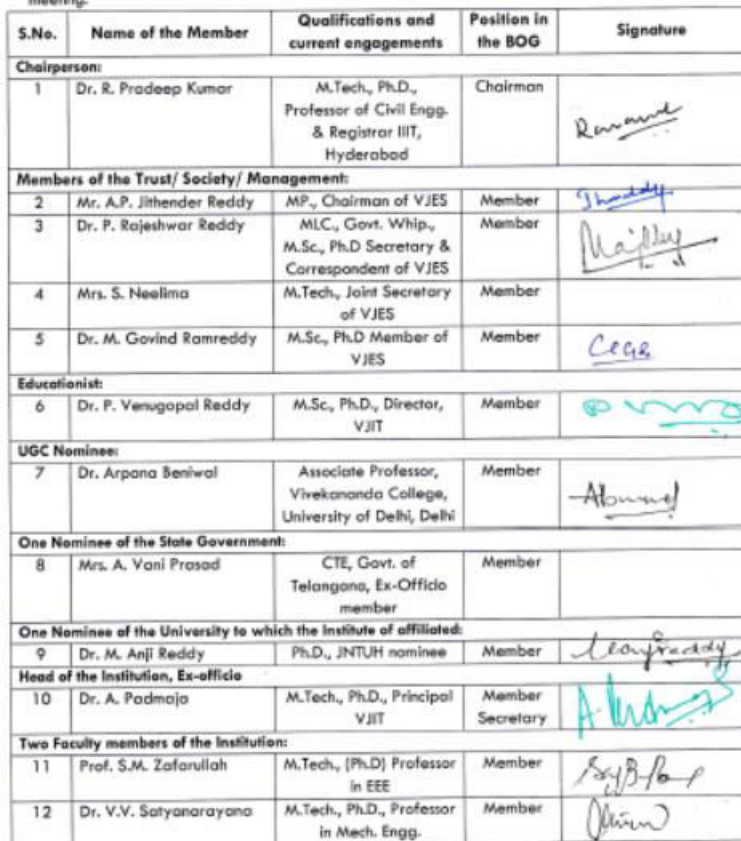 meeting.
S.No. Name of the Member Qualifications and current engagements Position in the BOG Signature
Chairperson:
1 Dr. R. Pradeep Kumar M.Tech., Ph.D., Chairman
Professor of Civil Engg.
& Registrar IIIT,
Hyderabad
Members of the Trust/ Society/ Management:
2 Mr. A.P. Jithender Reddy MP., Chairman of VJES Member
3 Dr. P. Rajeshwar Reddy MLC., Govt. Whip., Member
M.Sc., Ph.D Secretary &
Correspondent of VJES
4 Mrs. S. Neelima M.Tech., Joint Secretary Member
of VJES
5 Dr. M. Govind Ramreddy M.Sc., Ph.D Member of Member
VJES
Educationist:
6 Dr. P. Venugopal Reddy M.Sc., Ph.D., Director, Member
VJIT
UGC Nominee:
7 Dr. Arpana Beniwal Associate Professor, Member
Vivekananda College,
University of Delhi, Delhi
One Nominee of the State Government:
8 Mrs. A. Vani Prasad CTE, Govt. of Member
Telangana, Ex-Officio
member
One Nominee of the University to which the Institute of affiliated:
9 Dr. M. Anji Reddy Ph.D., JNTUH nominee Member
Head of the Institution, Ex-officio
10 Dr. A. Padmaja M.Tech., Ph.D., Principal Member
VJIT Secretary
Two Faculty members of the Institution:
11 Prof. S.M. Zafarullah M.Tech., (Ph.D) Professor Member
in EEE
12 Dr. V.V. Satyanarayana M.Tech., Ph.D., Professor Member
in Mech. Engg.